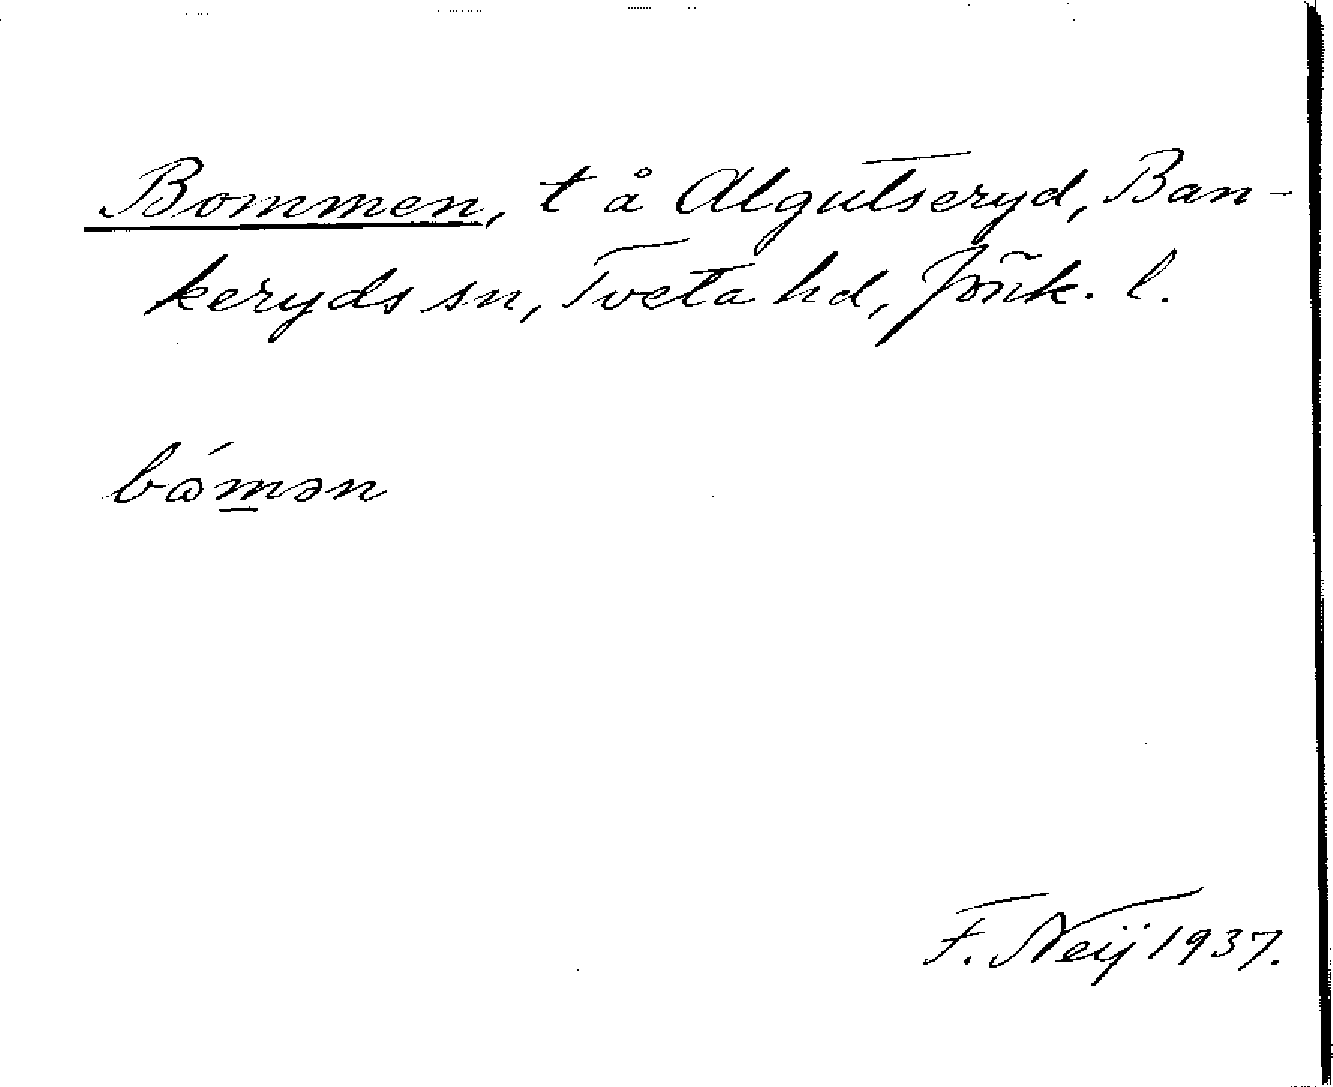 Bommen, t å Algutseryd, Ban-
keryds sn, Tveta hd, Jönk. l.
bǻm̲ən
F. Neij 1937.